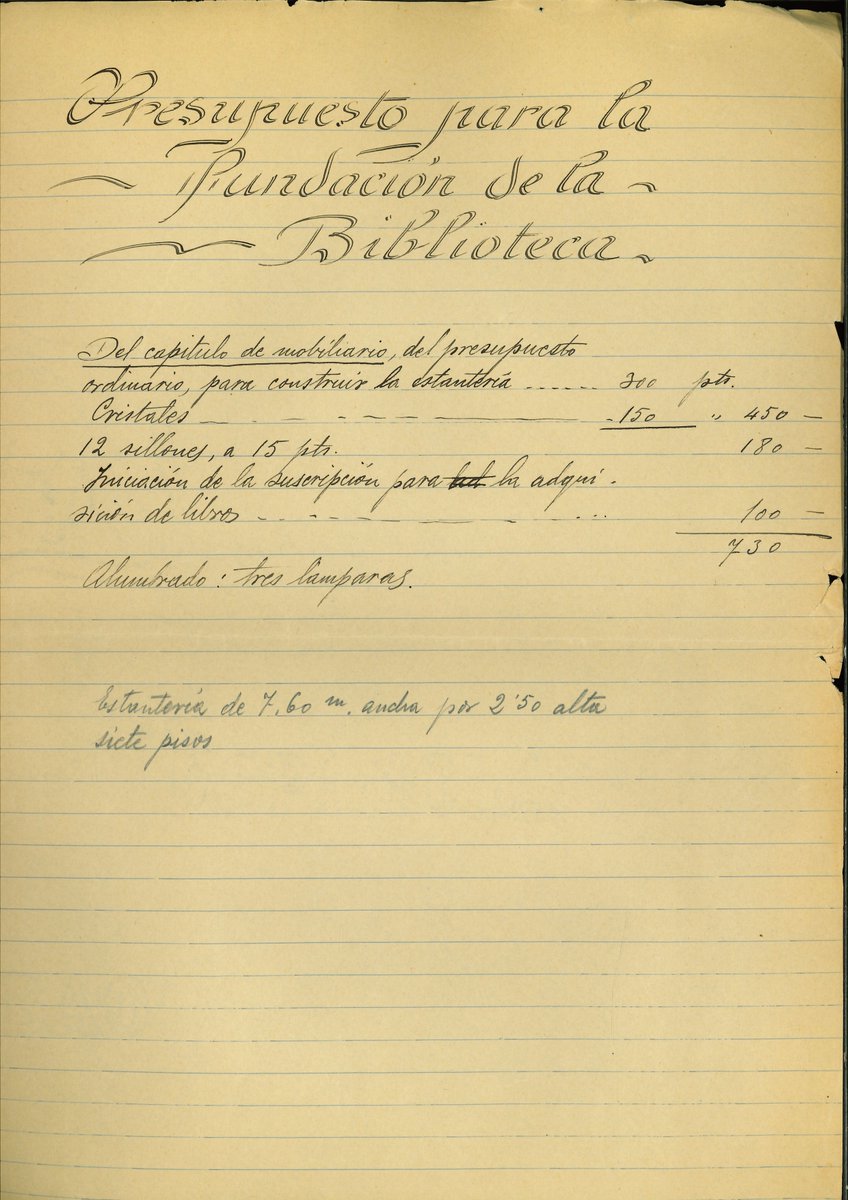 Presupuesto para la
Fundación de la
Biblioteca
Del capitulo de mobiliario, del presupuesto
ordinario, para construir la estantería ...... 300 ptr.
Cristales 150 " 450 —
12 sillones, a 15 ptr. 180 —
Iniciación de la suscripción para la adqui-
sición de libros ... 100 —
730
Alumbrado: tres lamparas.
Estantería de 7,60 m. ancha por 2'50 alta
siete pisos